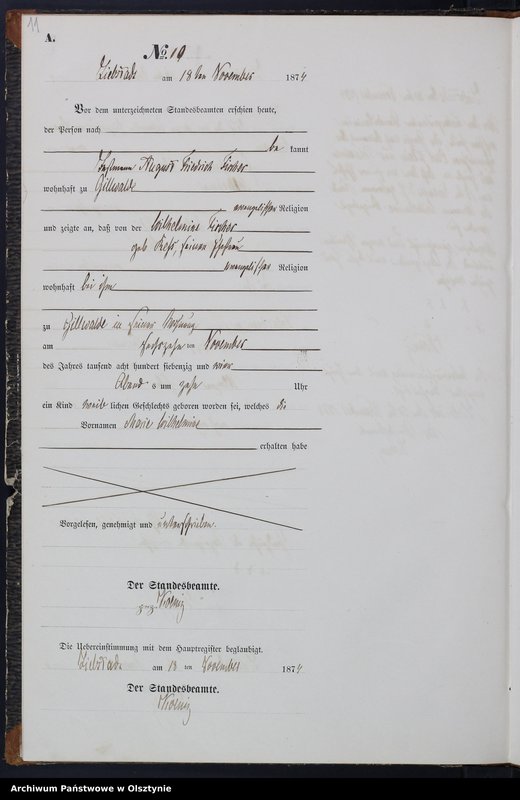 11
A.
No. 19
am 18ten November 1874
Vor dem unterzeichneten Standesbeamten erschien heute,
der Person nach
be kannt
August Friedrich Fischer
wohnhaft zu Gillwalde
evangelischer Religion
und zeigte an, daß von der Wilhelmine Fischer
geb. seiner Ehefrau
evangelischer Religion
wohnhaft bei ihm
zu Gillwalde in seiner Wohnung
am sechszehn ten November
des Jahres tausend acht hundert siebenzig und vier
Abend s um zehn Uhr
ein Kind weib lichen Geschlechts geboren worden sei, welches die
Vornamen Marie Wilhelmine
erhalten habe
Vorgelesen, genehmigt und unterschrieben.
Der Standesbeamte.
Die Uebereinstimmung mit dem Hauptregister beglaubigt.
am 18 ten November 1874
Der Standesbeamte.
Archiwum Państwowe w Olsztynie